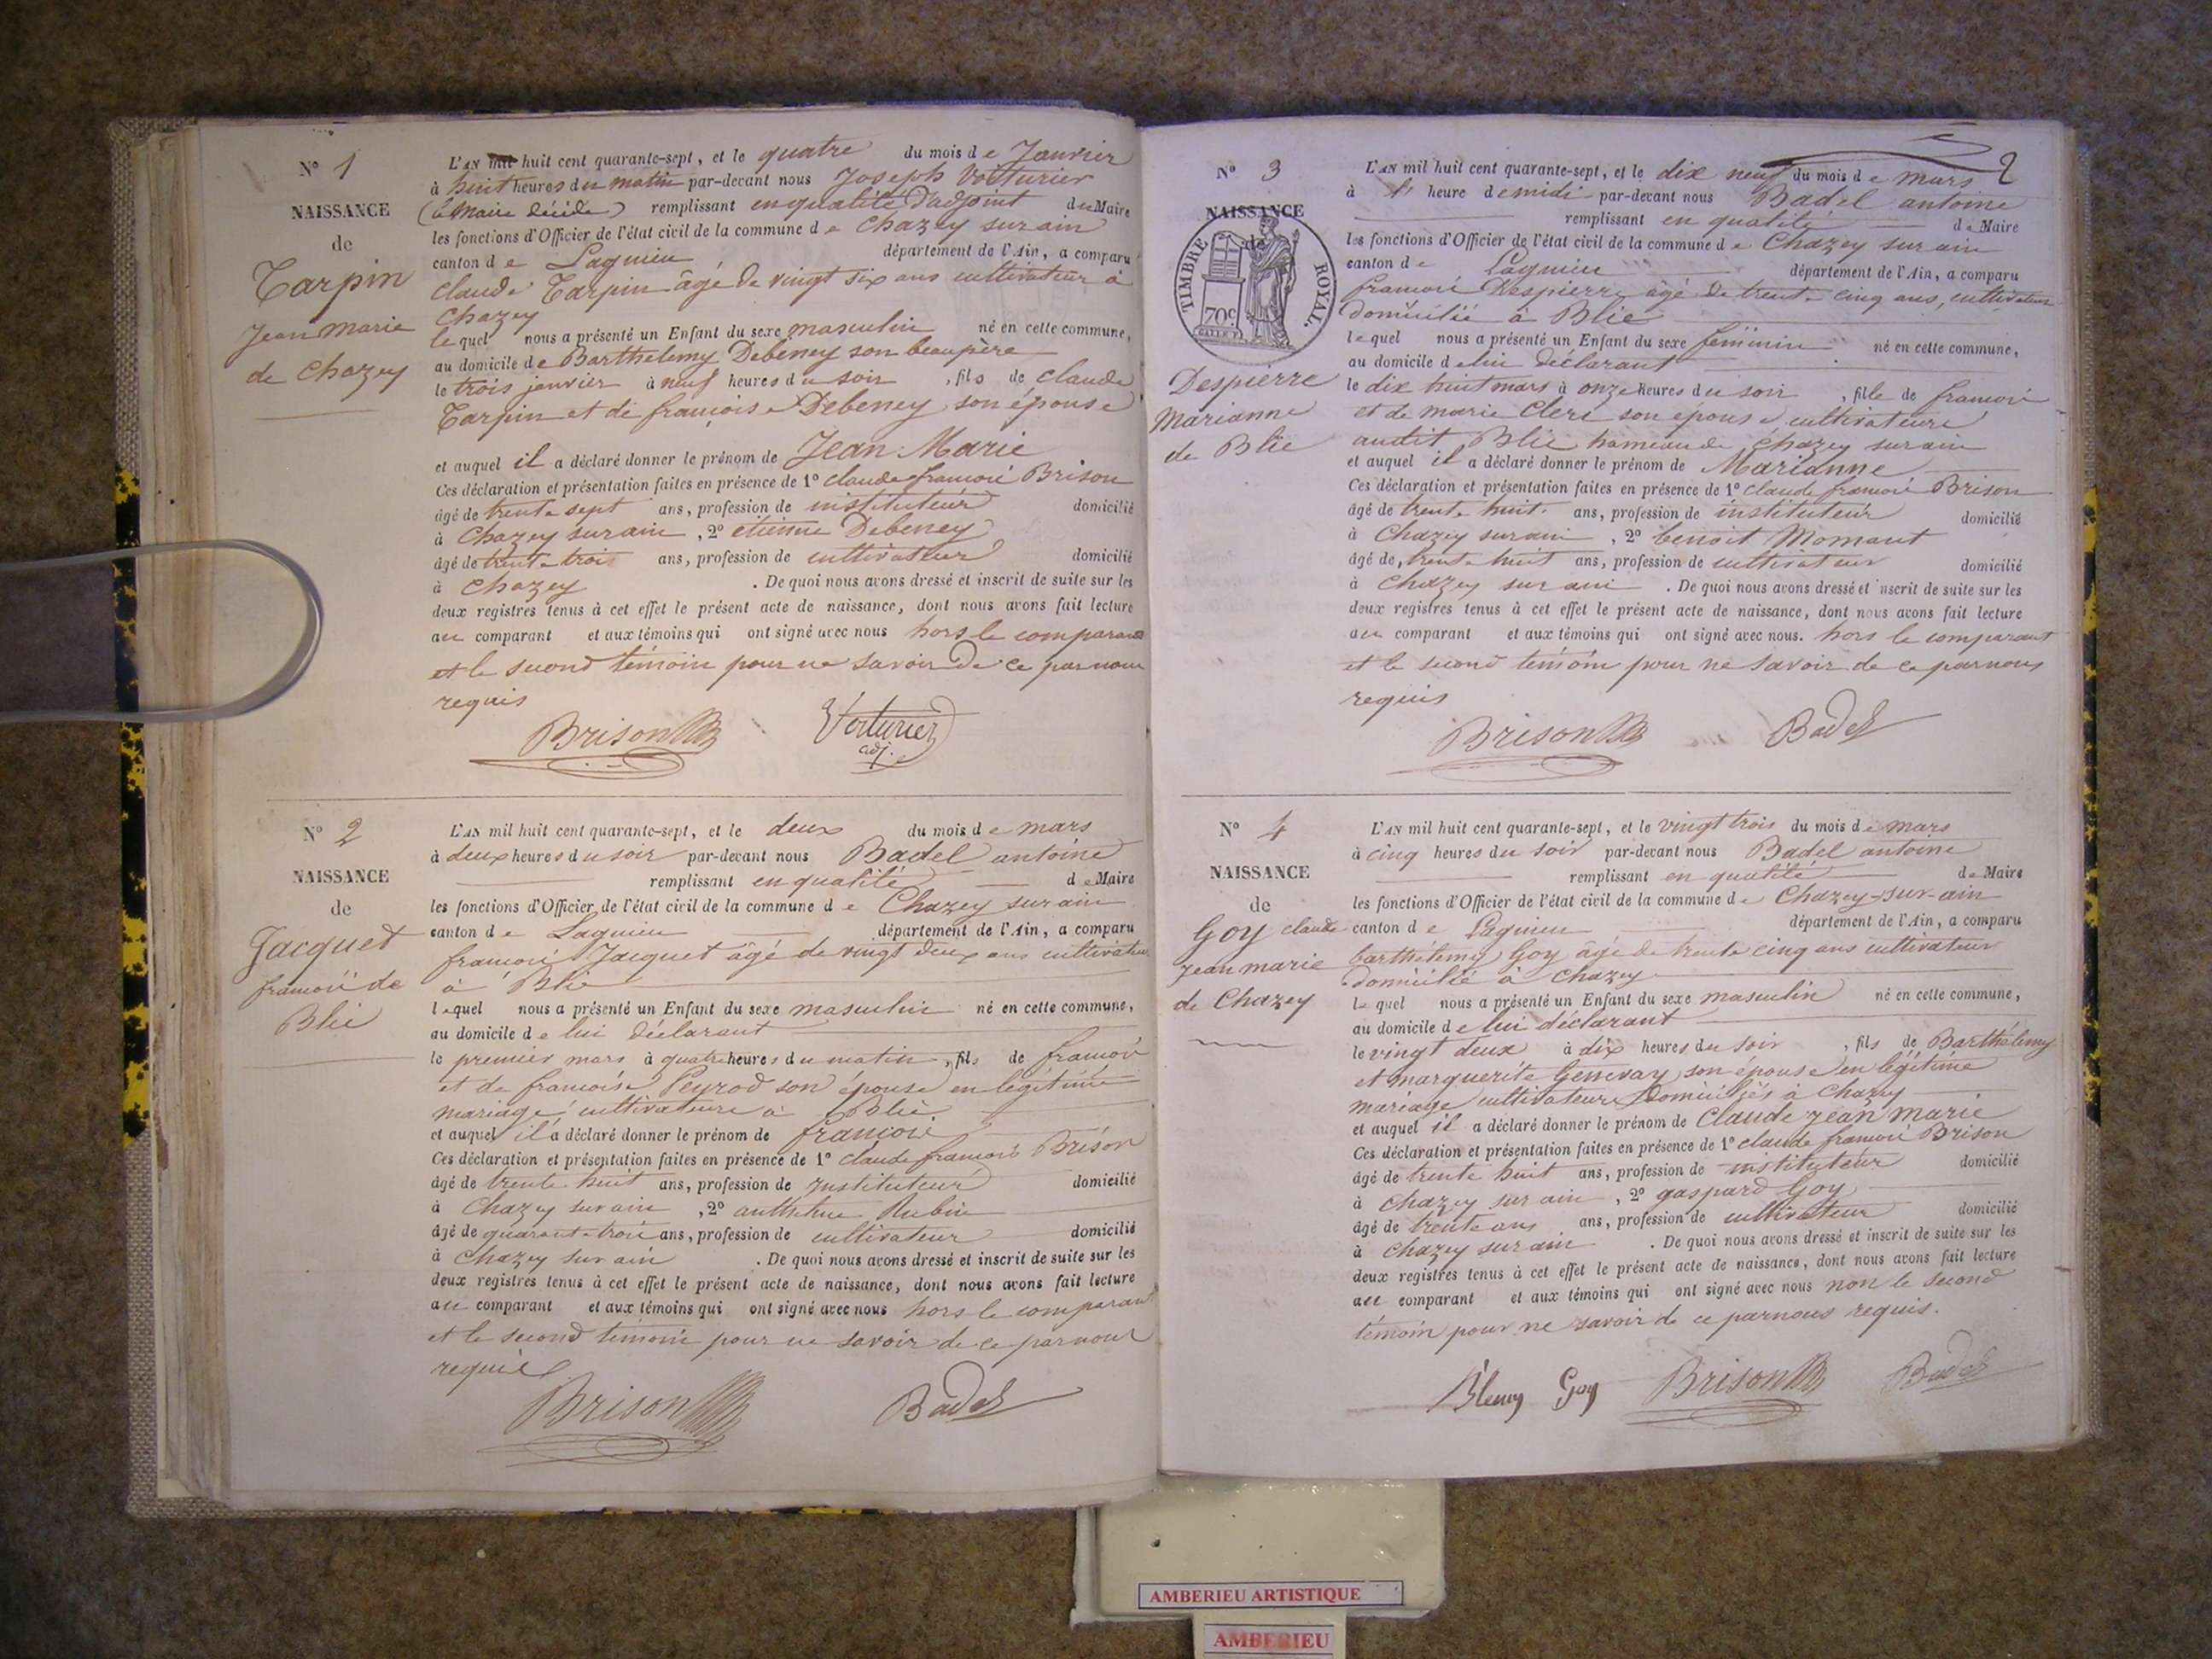 N° 1
NAISSANCE
de
Tarpin
Jean marie
de Chazey
L'AN mil huit cent quarante-sept, et le quatre du mois de Janvier
à huit heures du matin par-devant nous Joseph Voiturier
(le Maire décidé) remplissant en qualité d'adjoint du Maire
les fonctions d'Officier de l'état civil de la commune de Chazey sur ain
canton de Lagnieu département de l'Ain, a comparu
claude Tarpin âgé de vingt six ans cultivateur à
Chazey
lequel nous a présenté un Enfant du sexe masculin né en cette commune,
au domicile de Barthelemy Debeney son beaupère
le trois janvier à neuf heures du soir, fils de claude
Tarpin et de françoise Debeney son épouse
et auquel il a déclaré donner le prénom de Jean Marie
Ces déclaration et présentation faites en présence de 1° claude francoi Brison
âgé de trente sept ans, profession de instituteur domicilié
à Chazey sur ain, 2° etienne Debeney
âgé de trente trois ans, profession de cultivateur domicilié
à Chazey. De quoi nous avons dressé et inscrit de suite sur les
deux registres tenus à cet effet le présent acte de naissance, dont nous avons fait lecture
au comparant et aux témoins qui ont signé avec nous hors le comparant
et le second témoin pour ne savoir de ce par nous
requis
Brison Voiturier
adj.
N° 2
NAISSANCE
de
Jacquet
francoii de
Blie
L'AN mil huit cent quarante-sept, et le deux du mois de mars
à deux heures du soir par-devant nous Badel antoine
remplissant en qualité de Maire
les fonctions d'Officier de l'état civil de la commune de Chazey sur ain
canton de Lagnieu département de l'Ain, a comparu
francoi Jacquet âgé de vingt deux ans cultivateur
à Blie
lequel nous a présenté un Enfant du sexe masculin né en cette commune,
au domicile de lui déclarant
le premier mars à quatre heures du matin, fils de francoi
et de francoise Peyrod son épouse en légitime
mariage, cultivateurs à Blie.
et auquel il a déclaré donner le prénom de francoi
Ces déclaration et présentation faites en présence de 1° claude francoi Brison
âgé de trente huit ans, profession de instituteur domicilié
à Chazey sur ain, 2° Rubin
âgé de quarante trois ans, profession de cultivateur domicilié
à Chazey sur ain. De quoi nous avons dressé et inscrit de suite sur les
deux registres tenus à cet effet le présent acte de naissance, dont nous avons fait lecture
au comparant et aux témoins qui ont signé avec nous hors le comparant
et le second témoin pour ne savoir de ce par nous
requis
Brison Badel
2
N° 3
NAISSANCE
de
TIMBRE ROYAL.
70c
Despierre
Marianne
de Blie
L'AN mil huit cent quarante-sept, et le dix neuf du mois de mars
à 1 heure de midi par-devant nous Badel antoine
remplissant en qualité de Maire
les fonctions d'Officier de l'état civil de la commune de Chazey sur ain
canton de Lagnieu département de l'Ain, a comparu
francoi Despierre âgé de trente cinq ans, cultivateur
domicilié à Blie
lequel nous a présenté un Enfant du sexe féminin né en cette commune,
au domicile de lui déclarant
le dix huit mars à onze heures du soir, fille de francoi
et de marie Cleri son épouse cultivateurs
audit Blie hameau de Chazey sur ain
et auquel il a déclaré donner le prénom de Marianne
Ces déclaration et présentation faites en présence de 1° claude francoi Brison
âgé de trente huit ans, profession de instituteur domicilié
à Chazey sur ain, 2° benoit Momant
âgé de trente huit ans, profession de cultivateur domicilié
à Chazey sur ain. De quoi nous avons dressé et inscrit de suite sur les
deux registres tenus à cet effet le présent acte de naissance, dont nous avons fait lecture
au comparant et aux témoins qui ont signé avec nous. hors le comparant
et le second témoin pour ne savoir de ce par nous
requis
Brison Badel
N° 4
NAISSANCE
de
Goy claude
jean marie
de Chazey
L'AN mil huit cent quarante-sept, et le vingt trois du mois de mars
à cinq heures du soir par-devant nous Badel antoine
remplissant en qualité de Maire
les fonctions d'Officier de l'état civil de la commune de Chazey-sur-ain
canton de Lagnieu département de l'Ain, a comparu
barthélemy Goy âgé de trente cinq ans cultivateur
domicilié à Chazey
lequel nous a présenté un Enfant du sexe masculin né en cette commune,
au domicile de lui déclarant
le vingt deux à dix heures du soir, fils de Barthélemy
et marguerite Genevay son épouse en légitime
mariage cultivateurs domiciliés à Chazey
et auquel il a déclaré donner le prénom de Claude jean marie
Ces déclaration et présentation faites en présence de 1° claude francoi Brison
âgé de trente huit ans, profession de instituteur domicilié
à Chazey sur ain, 2° gaspard Goy
âgé de trente ans ans, profession de cultivateur domicilié
à Chazey sur ain. De quoi nous avons dressé et inscrit de suite sur les
deux registres tenus à cet effet le présent acte de naissance, dont nous avons fait lecture
au comparant et aux témoins qui ont signé avec nous non le second
témoin pour ne savoir de ce par nous requis.
Goy Brison Badel
AMBERIEU ARTISTIQUE
AMBERIEU